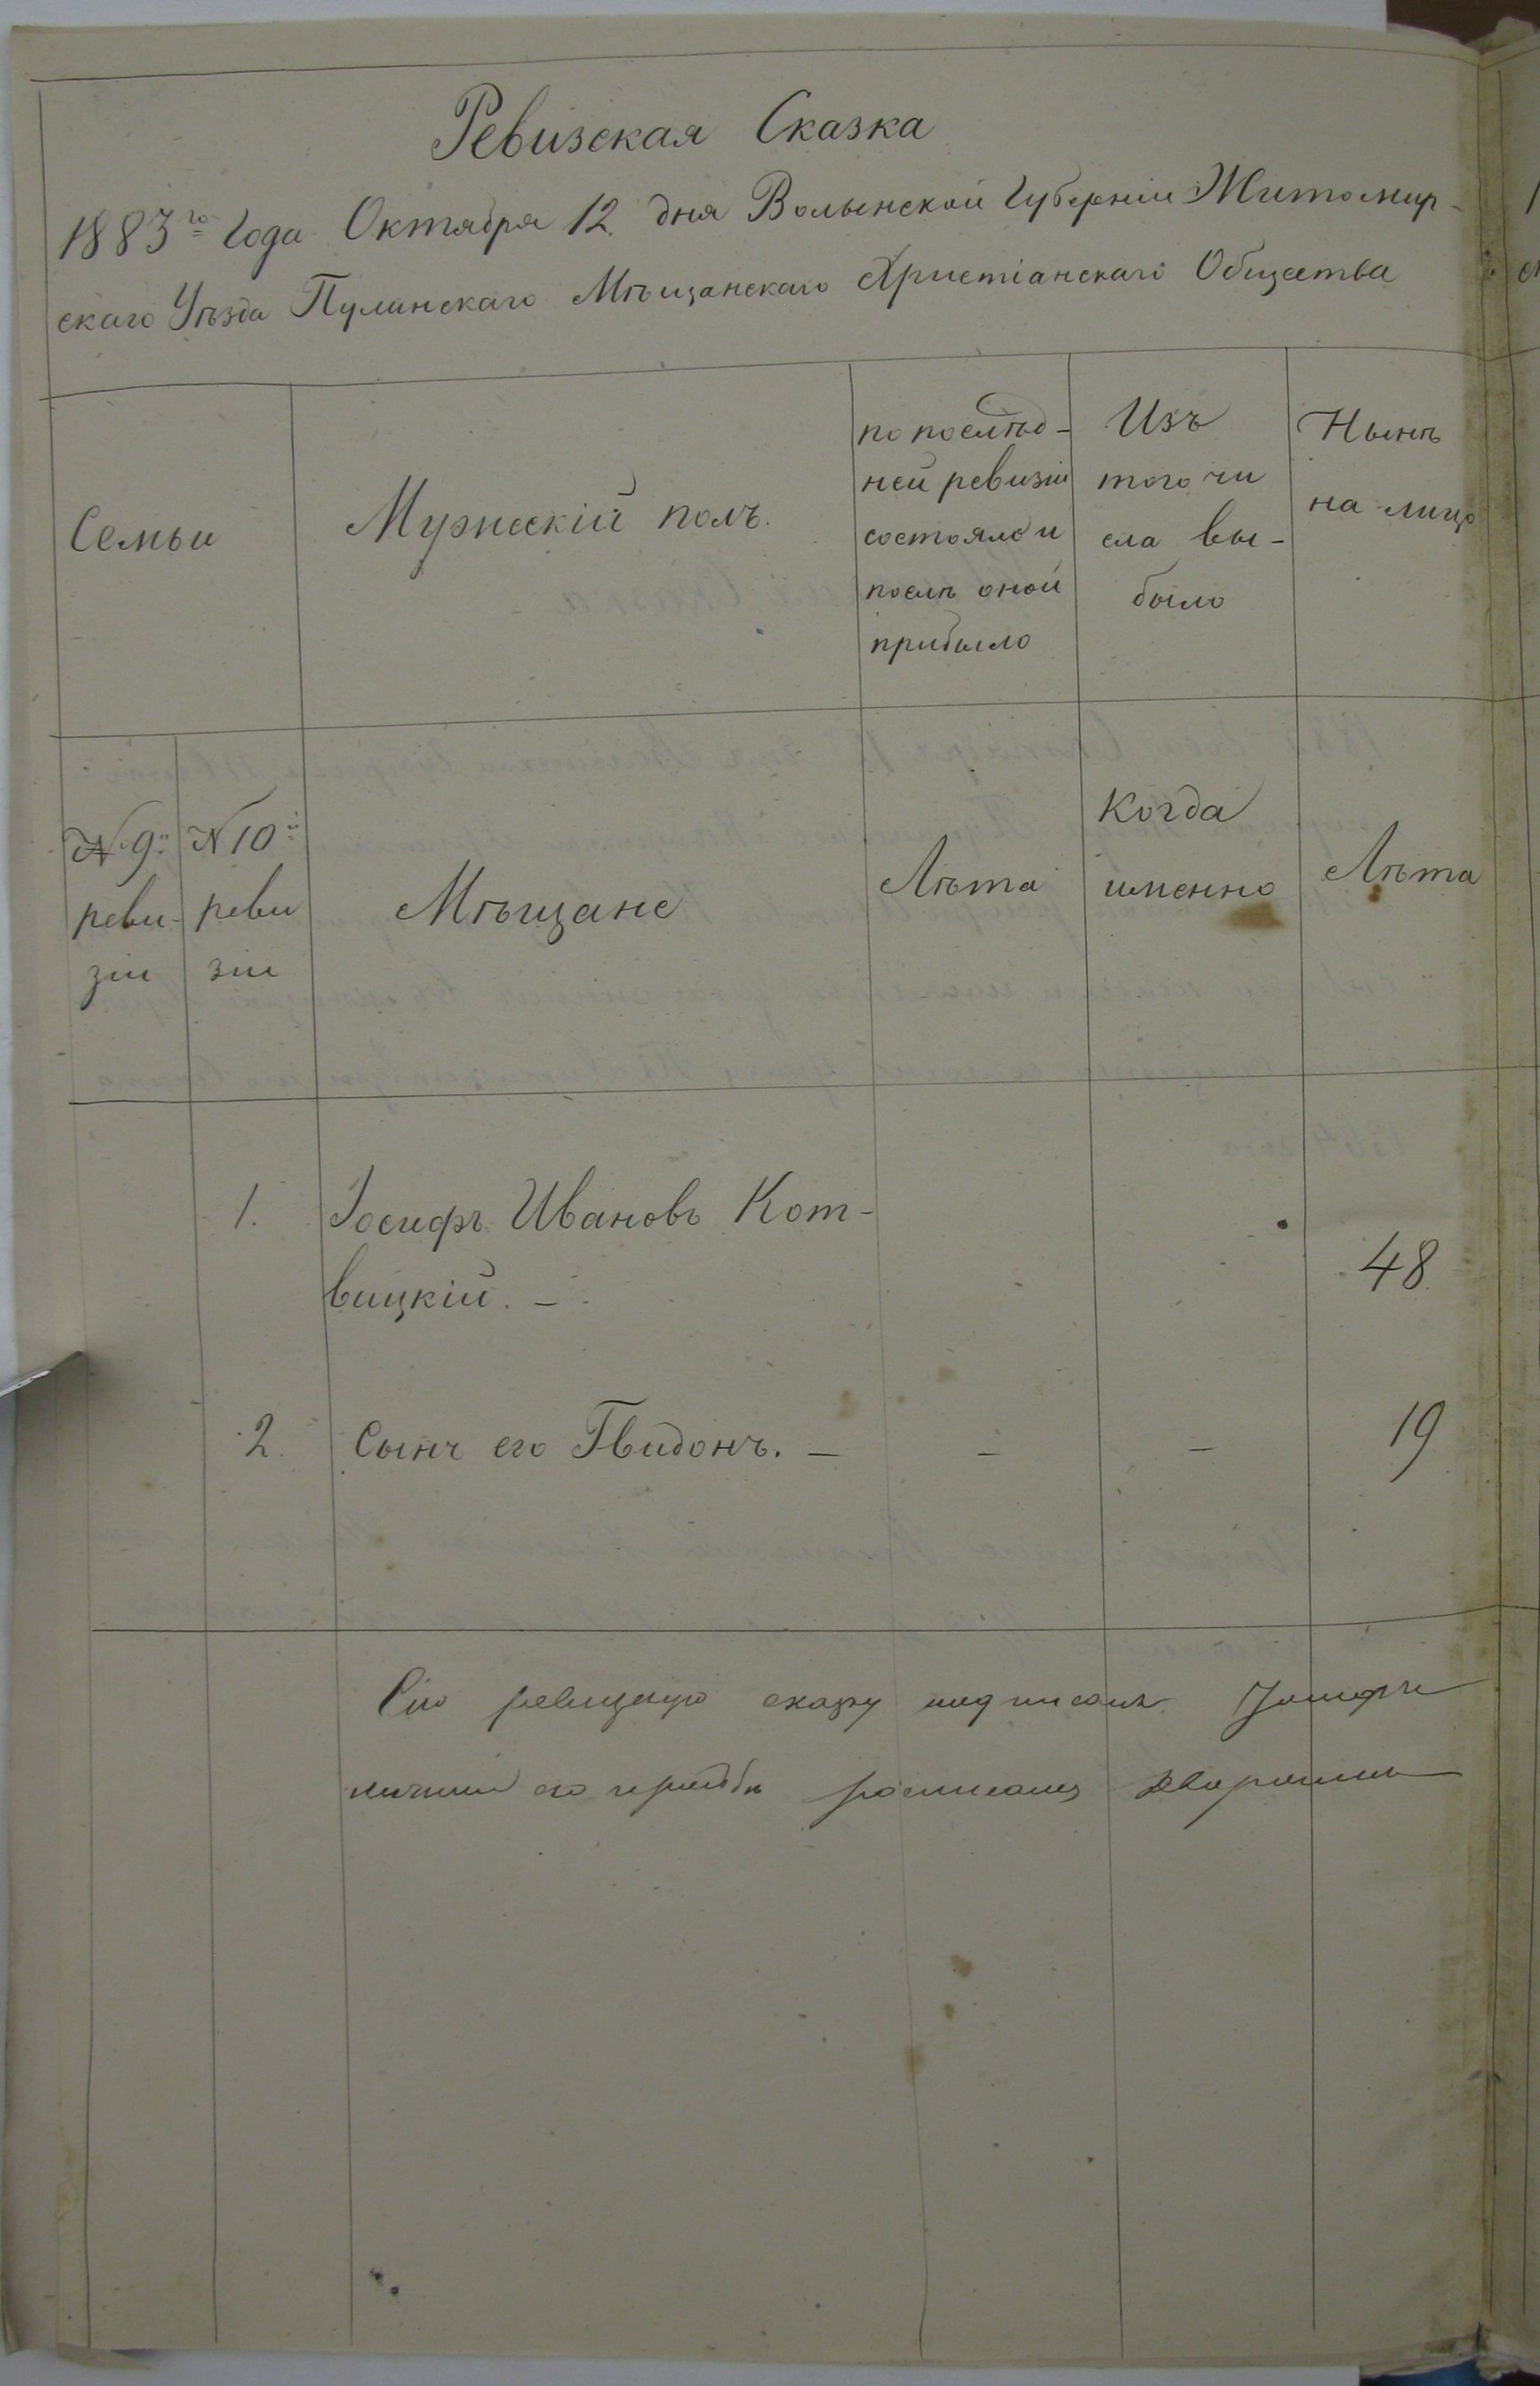 Ревизская Сказка
1883го Года Октября 12. дня Волынской Губерніи Житомир-
скаго Уѣзда Пулинскаго Мѣщанскаго Христіанскаго Общества
Семьи
Мужескій полъ.
по послѣд-
ней ревизіи
состояло и
послѣ оной
прибыло
Изъ
того чи
сла вы-
было
Нынѣ
на лицо
№ 9й
реви-
зіи
№ 10й
реви
зіи
Мѣщане
Лѣта
Когда
именно
Лѣта
1. Іосифъ Ивановъ Кот-
вицкій. - 48.
2. Сынъ его Гвидонъ. - - - 19
Сію ревизскую сказку подписалъ
его росписался дворянинъ